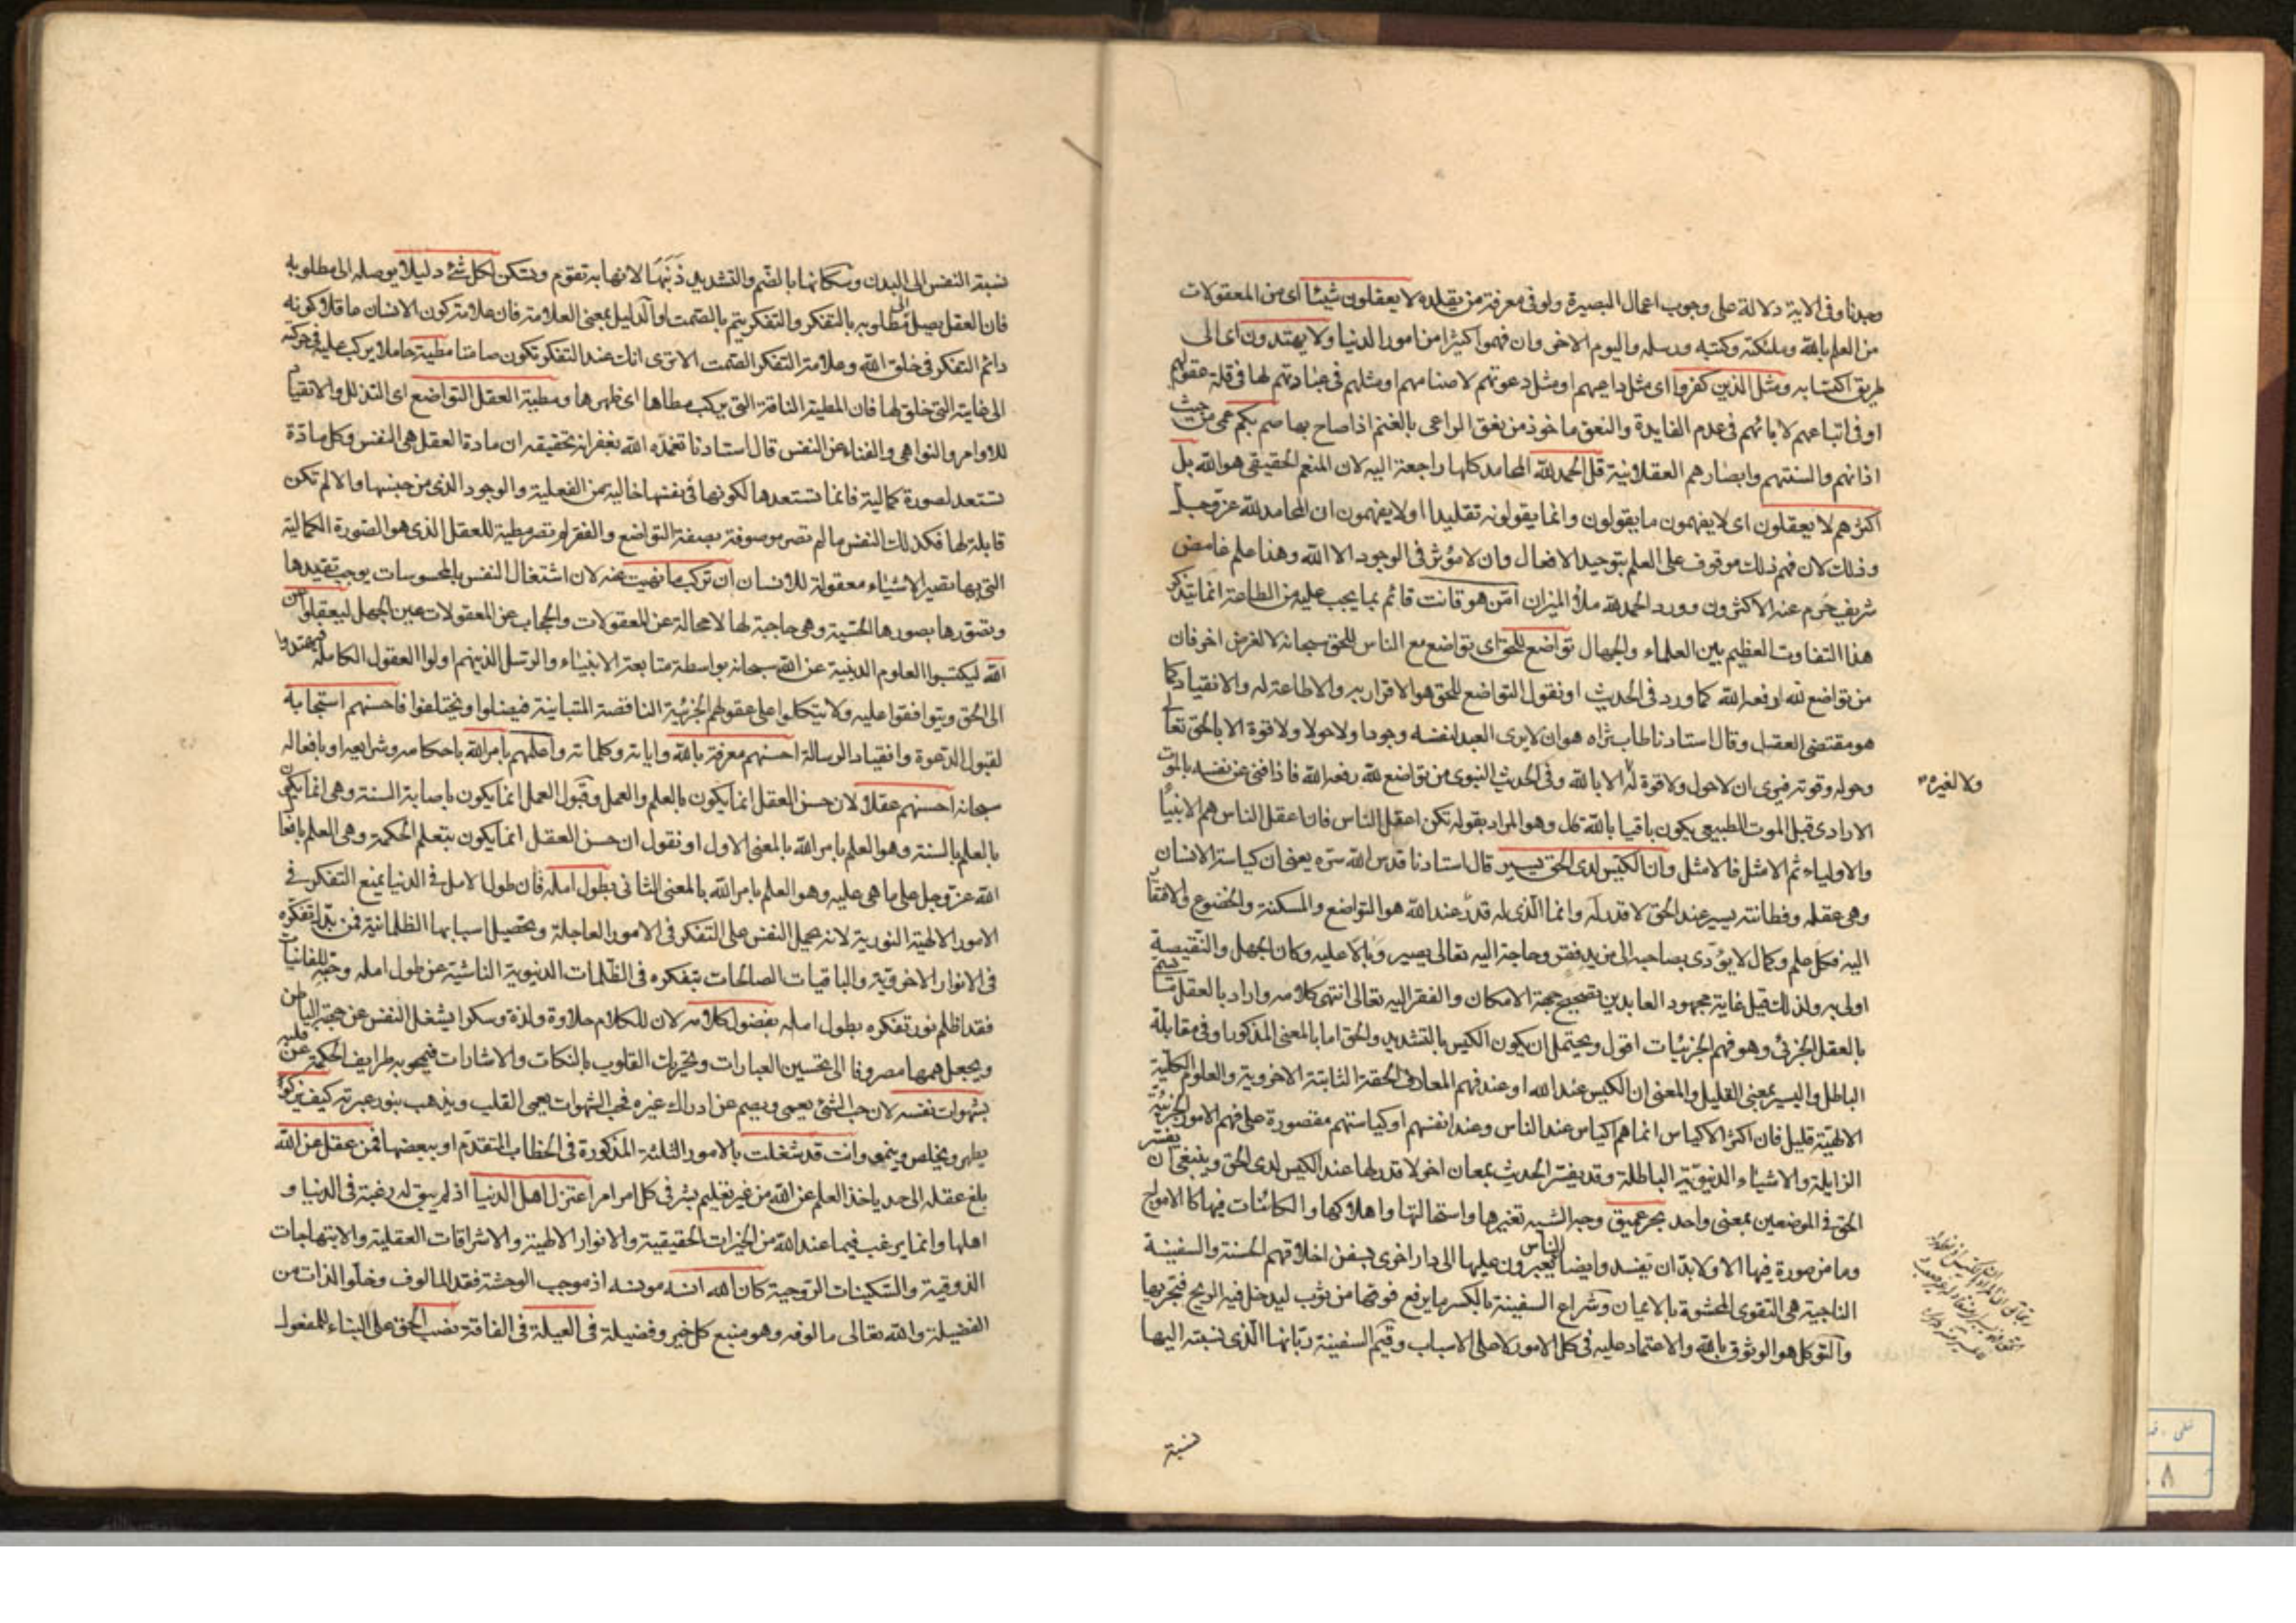 وجدنا وفى الاية دلالة على وجوب اعمال البصيرة ولو فى معرفة من يقلده لا يعقلون شيئا اى من المعقولات
من العلم بالله وملئكته وكتبه ورسله واليوم الاخر وان فهموا كثيرا من امور الدنيا ولا يهتدون اى الى
طريق اكتسابه ومثل الذين كفروا اى مثل داعيهم او مثل دعوتهم لاصنامهم او مثلهم فى عبادتهم لها فى قلة عقولهم
او فى اتباعهم لابائهم فى عدم الفايدة والنعق ماخوذ من نعق الراعى بالغنم اذا صاح بها صم بكم عمى من حيث
اذانهم والسنتهم وابصارهم العقلانية قل الحمد لله المحامد كلها راجعة اليه لان المنعم الحقيقى هو الله بل
اكثرهم لا يعقلون اى لا يفهمون ما يقولون وانما يقولونه تقليدا او لا يفهمون ان المحامد لله عز وجل
وذلك لان فهم ذلك موقوف على العلم بتوحيد الافعال وان لا مؤثر فى الوجود الا الله وهذا علم غامض
شريف حرم عنه الاكثرون وورد الحمد لله ملأ الميزان امن هو قانت قائم بما يجب عليه من الطاعة انما يتذكر
هذا التفاوت العظيم بين العلماء والجهال تواضع للحق اى تواضع مع الناس للحق سبحانه لا لغرض اخر فان
من تواضع لله رفعه الله كما ورد فى الحديث او نقول التواضع للحق هو الاقرار به والاطاعة له والانقياد كما
هو مقتضى العقل وقال استادنا طاب ثراه هو ان لا يرى العبد لنفسه وجودا ولا حولا ولا قوة الا بالحق تعالى
وحوله وقوته فيرى ان لا حول ولا قوة له الا بالله وفى الحديث النبوى من تواضع لله رفعه الله فاذا فنى عن نفسه بالموت
ولا لغيره
الارادى قبل الموت الطبيعى يكون باقيا بالله كل وهو المراد بقوله تكن اعقل الناس فان اعقل الناس هم الانبياء
والاولياء ثم الامثل فالامثل وان الكيس لدى الحق يسير قال استادنا قدس الله سره يعنى ان كياسة الانسان
وهى عقله وفطانته يسير عند الحق لا قدر له وانما الذى له قدر عند الله هو التواضع والمسكنة والخضوع والافتقار
اليه فكل علم وكمال لا يؤدى بصاحبه الى مزيد فقر وحاجة اليه تعالى يصير وبالا عليه وكان الجهل والنقيصة
اولى به ولذلك قيل غاية مجهود العابدين تصحيح جهة الامكان والفقر اليه تعالى انتهى كلامه واراد بالعقل
بالعقل الجزئى وهو فهم الجزئيات اقول ويحتمل ان يكون الكيس بالتشديد والحق اما بالمعنى المذكور او فى مقابلة
الباطل واليسير بمعنى القليل والمعنى ان الكيس عند الله او عند فهم المعارف الحقة الثابتة الاخروية والعلوم الكلية
الالهية قليل فان اكثر الاكياس انما هم اكياس عند الناس وعند انفسهم او كياستهم مقصورة على فهم الامور الجزئية
الزايلة والاشياء الدنيوية الباطلة وقد يفسر الحديث بمعان اخر لا قدر لها عند الكيس لدى الحق وينبغى ان يفسر
الحق فى الموضعين بمعنى واحد بحر عميق وجه الشبه تغيرها واستحالتها واهلاكها والكائنات فيها كالامواج
وما من صورة فيها الا ولا بد ان يفسد وايضا الناس يعبرون عليها الى دار اخرى بسفن اخلاقهم الحسنة والسفينة
الناجية هى التقوى المحشوة بالايمان وشراع السفينة بالكسر ما يرفع فوقها من ثوب ليدخل فيه الريح فتجريها
والتوكل هو الوثوق بالله والاعتماد عليه فى كل الامور لا على الاسباب وقيم السفينة ربانها الذى نسبته اليها
نسبة
نسبة النفس الى البدن وسكانها بالضم والتشديد ذنبها لانها به تقوم وتسكن لكل شئ دليلا يوصله الى مطلوبه
فان العقل يصل الى مطلوبه بالتفكر والتفكر يتم بالصمت او الدليل بمعنى العلامة فان علامة كون الانسان عاقلا كونه
دائم التفكر فى خلق الله وعلامة التفكر الصمت الا ترى انك عند التفكر تكون صامتا مطية حاملا يركب عليه فى حركته
الى غايته التى خلق لها فان المطية الناقة التى يركب مطاها اى ظهرها ومطية العقل التواضع اى التذلل والانقياد
للاوامر والنواهى والفناء عن النفس قال استادنا تغمده الله بغفرانه تحقيقه ان مادة العقل هى النفس وكل مادة
تستعد لصورة كمالية فانما تستعدها لكونها فى نفسها خالية من الفعلية والوجود الذى من جنسها والا لم تكن
قابلة لها فكذلك النفس ما لم تصر موصوفة بصفة التواضع والفقر لم تصر مطية للعقل الذى هو الصورة الكمالية
التى بها تصير الاشياء معقولة للانسان ان تركب ما نهيت عنه لان اشتغال النفس بالمحسوسات يوجب تقيدها
وتصورها بصورها الحسية وهى حاجبة لها لا محالة عن المعقولات والحجاب عن المعقولات عين الجهل ليعقلوا عن
الله ليكتسبوا العلوم الدينية عن الله سبحانه بواسطة متابعة الانبياء والرسل الذينهم اولوا العقول الكاملة فيهتدوا
الى الحق ويتوافقوا عليه ولا يتكلوا على عقولهم الجزئية الناقصة المتباينة فيضلوا ويختلفوا فاحسنهم استجابة
لقبول الدعوة وانقياد الرسالة احسنهم معرفة بالله واياته وكلماته واعلمهم بامر الله باحكامه وشرايعه او بافعاله
سبحانه احسنهم عقلا لان حسن العقل انما يكون بالعلم والعمل وقبول العمل انما يكون باصابة السنة وهى انما يكون
بالعلم بالسنة وهو العلم بامر الله بالمعنى الاول او نقول ان حسن العقل انما يكون بتعلم الحكمة وهى العلم بافعال
الله عز وجل على ما هى عليه وهو العلم بامر الله بالمعنى الثانى بطول امله فان طول الامل فى الدنيا يمنع التفكر فى
الامور الالهية النورية لانه يحمل النفس على التفكر فى الامور العاجلة وتحصيل اسبابها الظلمانية فمن بدل تفكره
فى الانوار الاخروية والباقيات الصالحات بتفكره فى الظلمات الدنيوية الناشية عن طول امله وحبه للفانيات
فقد اظلم نور تفكره بطول امله بفضول كلامه لان للكلام حلاوة ولذة وسكرا يشغل النفس عن جهة الباطن
ويجعل همها مصروفا الى تحسين العبارات وتحريك القلوب بالنكات والاشارات فيمحو به طرايف الحكمة عن قلبه
بشهوات نفسه لان حب الشئ يعمى ويصم عن ادراك غيره فحب الشهوات يعمى القلب ويذهب بنور عبرته كيف يزكوا
يطهر ويخلص وينمو وانت قد شغلت بالامور الثلثة المذكورة فى الخطاب المتقدم او ببعضها فمن عقل عن الله
بلغ عقله الى حد ياخذ العلم عن الله من غير تعليم بشر فى كل امر امر اعتزل اهل الدنيا اذ لم يبق له رغبة فى الدنيا و
اهلها وانما يرغب فيما عند الله من الخيرات الحقيقية والانوار الالهية والاشراقات العقلية والابتهاجات
الذوقية والسكينات الروحية كان الله انسه مونسه اذ موجب الوحشة فقد المالوف وخلو الذات من
الفضيلة والله تعالى مالوفه وهو منبع كل خير وفضيلة فى العيلة فى الفاقة نصب الحق على البناء للمفعول